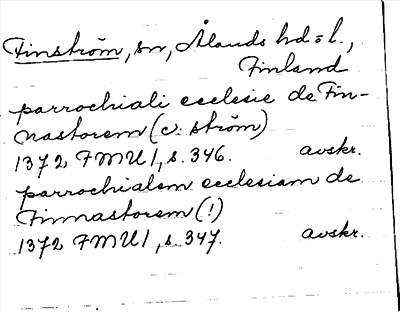 Finström, sn, Ålands hd = l.,
Finland
parrochiali ecclesie de Fin-
nastorem (c: ström)
1372 FMU 1, s. 346. avskr.
parrochialem ecclesiam de
Finnastorem (!)
1372 FMU 1, s. 347. avskr.